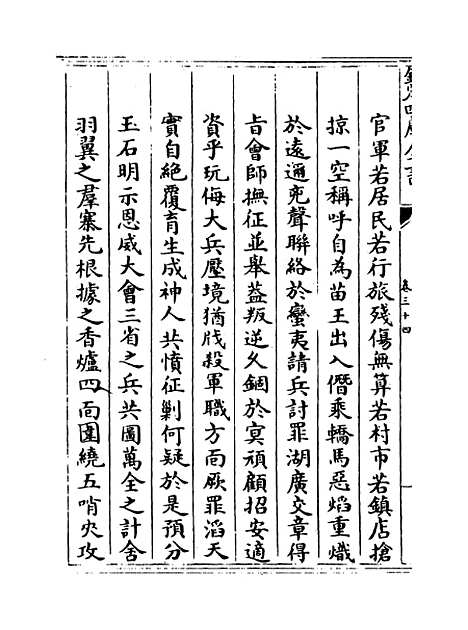 欽定四庫全書
卷三十四
官軍若居民若行旅殘傷無算若村市若鎮店搶
掠一空稱呼自為苗王出入僭乘轎馬惡焰重熾
於遠邇兇聲聯絡於蠻夷請兵討罪湖廣交章得
㫖會師撫征並舉葢叛逆久錮於冥頑顧招安適
資乎玩侮大兵壓境猶戕殺軍職方面厥罪滔天
實自絕覆育生成神人共憤征剿何疑於是預分
玉石明示恩威大會三省之兵共圖萬全之計舍
羽翼之羣寨先根據之香爐四面圍繞五哨夾攻